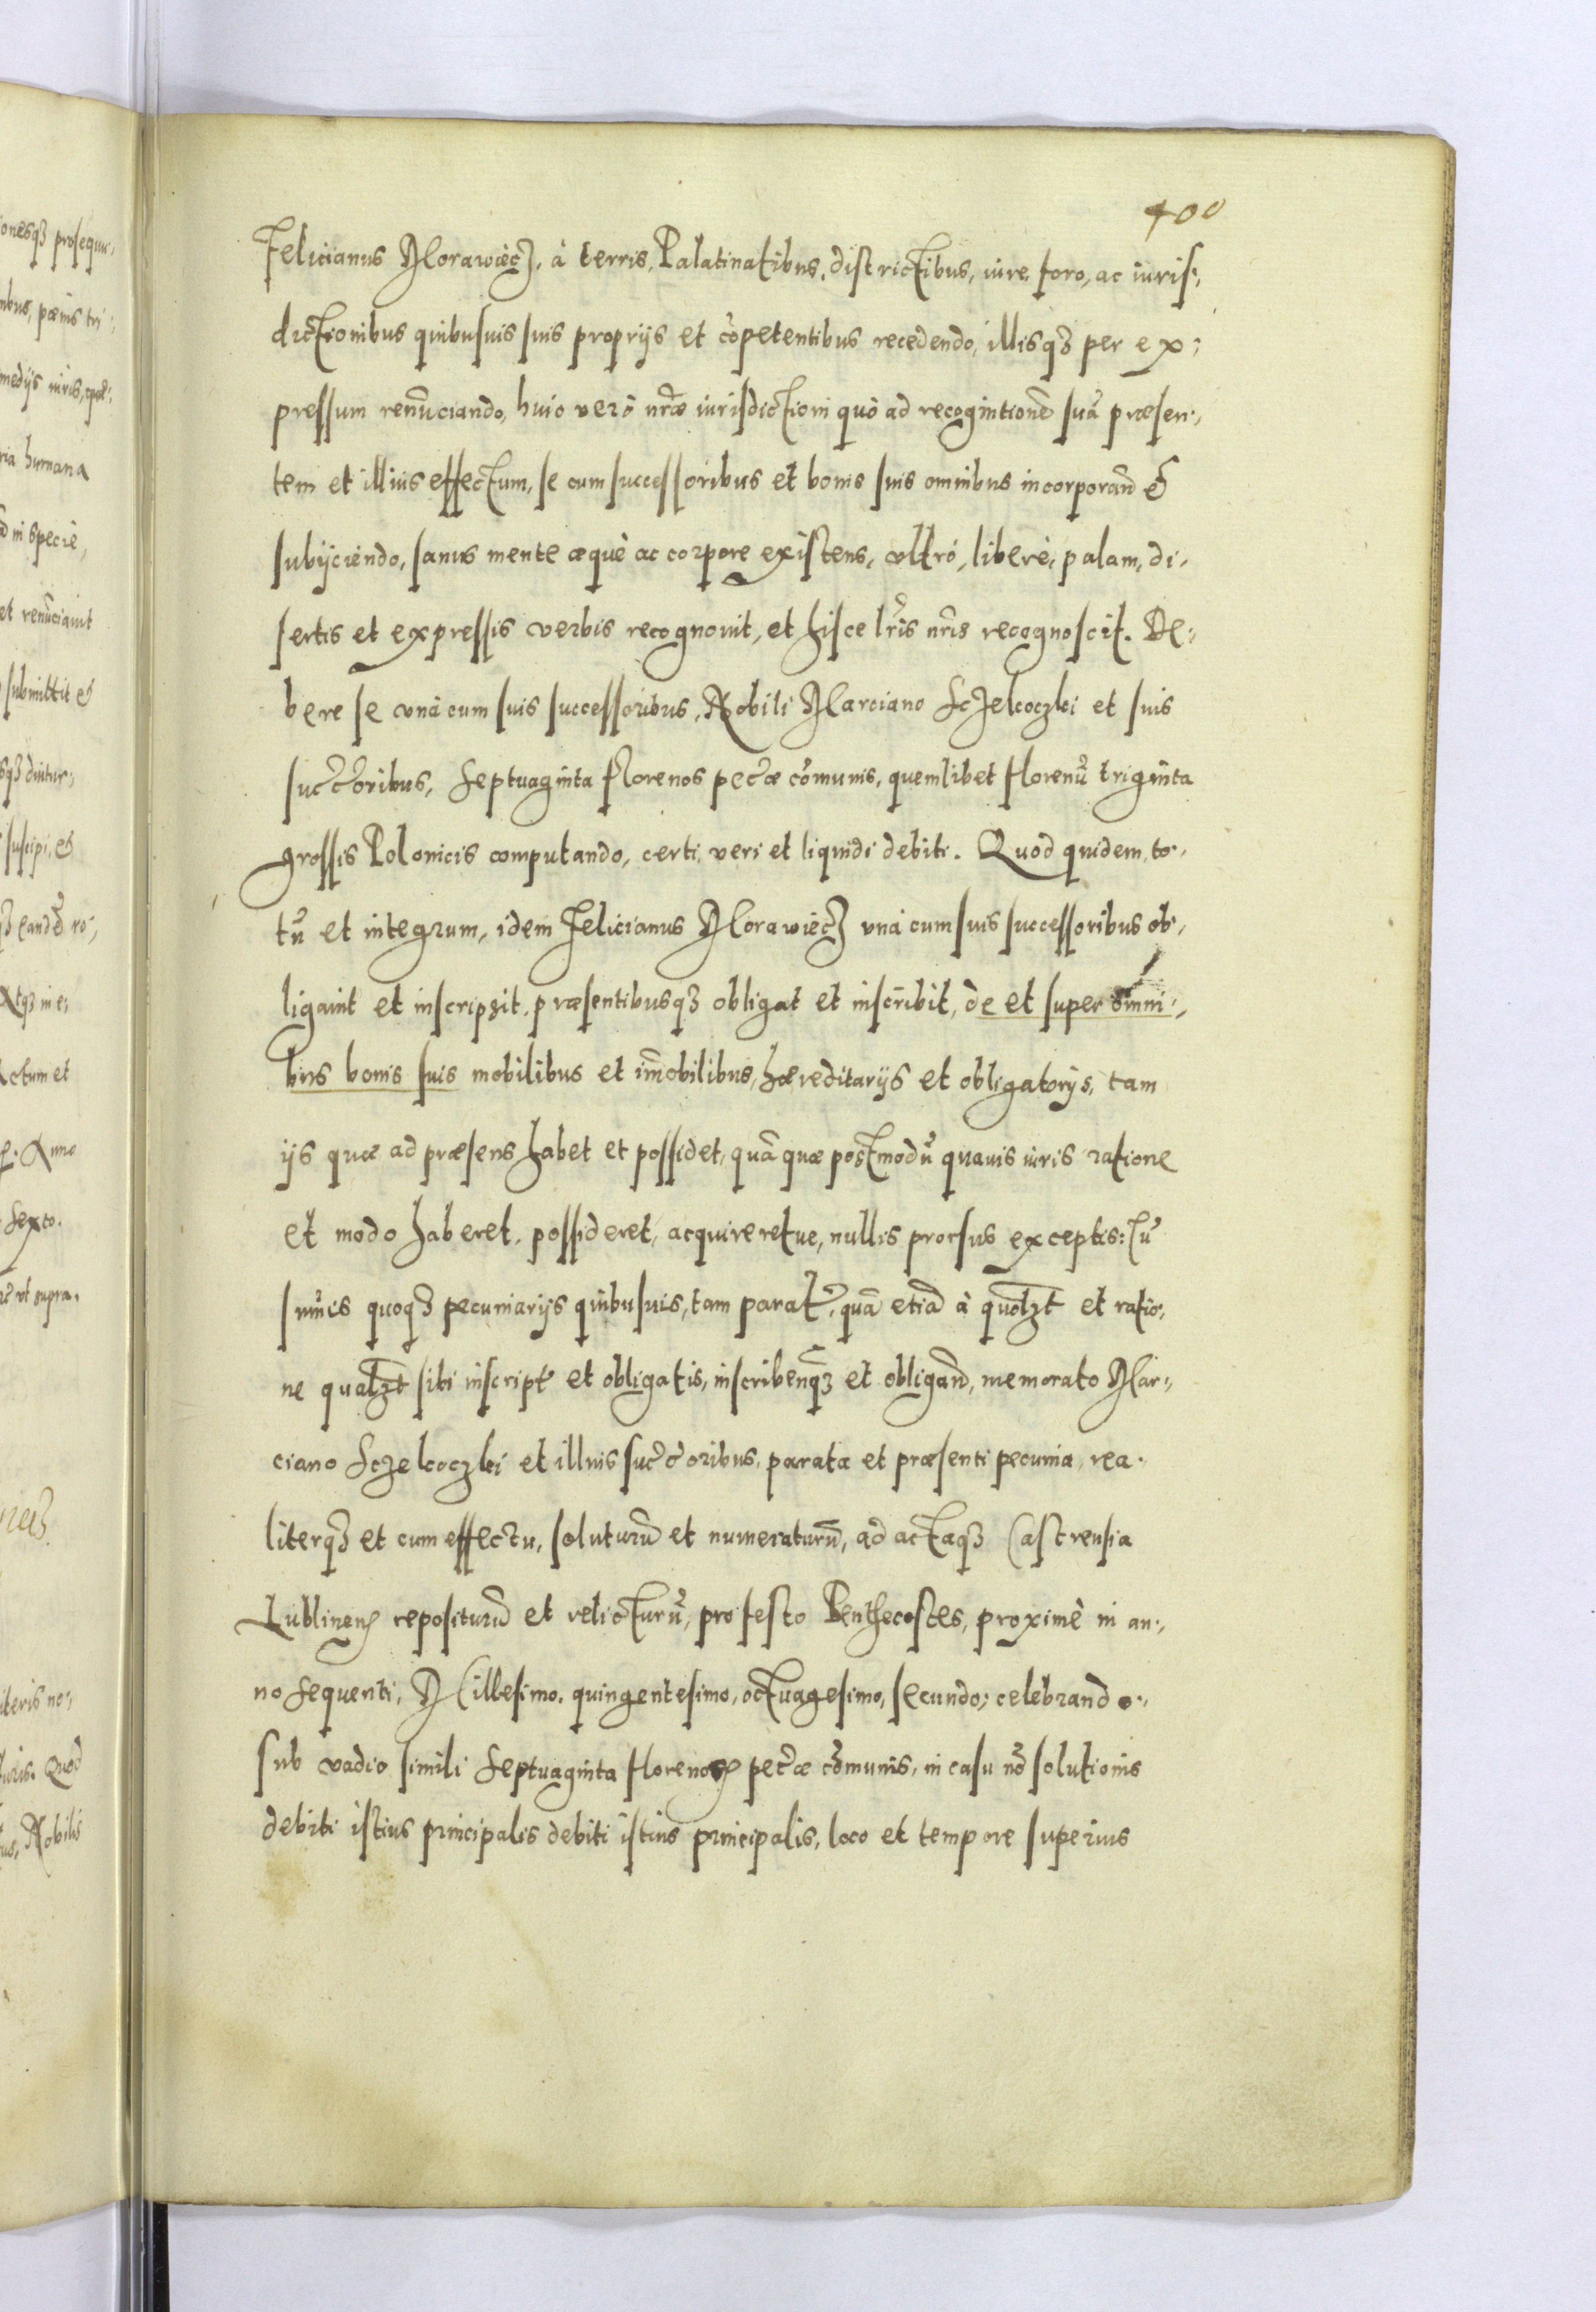 400
Felicianus Morawiecz, à terris, Palatinatibus, districtibus, iure, foro, ac iuris,,
dictionibus quibusuis suis proprijs et cõpetentibus recedendo, illisqȝ per ex,,
pressum renũciando, huic verò nrãe iurisdictioni quò ad recognitionẽ suã præsen,,
tem et illius effectum, se cum successoribus et bonis suis omnibus incorporand̃ &
subijciendo, sanus mente æquè ac corpore existens, vltrò, liberè, palam, di,,
sertis et expressis verbis recognouit, et hisce lrĩs nrĩs recognoscit. De,,
bere se vnà cum suis successoribus, Nobili Marciano Sczelcoczki et suis
succ̃oribus, Septuaginta florenos pec̃æ cõmunis, quemlibet florenũ triginta
grossis Polonicis computando, certi, veri et liquidi debiti. Quod quidem, to,,
tũ et integrum, idem Felicianus Morawiecz vnà cum suis successoribus ob,,
ligauit et inscripsit, præsentibusqȝ obligat et inscribit, de et super omni,,
bus bonis suis mobilibus et im̃obilibus, hæreditarijs et obligatorijs, tam
ijs quæ ad præsens habet et possidet, quã quæ postmodũ quauis iuris ratione
et modo haberet, possideret, acquireretue, nullis prorsus exceptis: Tũ
sum̃is quoqȝ pecuniarijs quibusuis, tam parat̃, quã etiã à quotzt et ratio,,
ne qualzt sibi inscript̃ et obligatis, inscribenqȝ et obligand̃, memorato Mar,,
ciano Sczelcoczki et illius succ̃oribus, parata et præsenti pecunia, rea,,
literqȝ et cum effectu, soluturũ et numeraturũ, ad actaqȝ Castrensia
Lublineñ repositurũ et relicturũ, pro festo Penthecostes, proximè in an,,
no sequenti, Millesimo, quingentesimo, octuagesimo, secundo; celebrando,,
sub vadio simili Septuaginta florenoꝝ pec̃æ cõmunis, in casu nõ solutionis
debiti istius principalis debiti istius principalis, loco et tempore superius